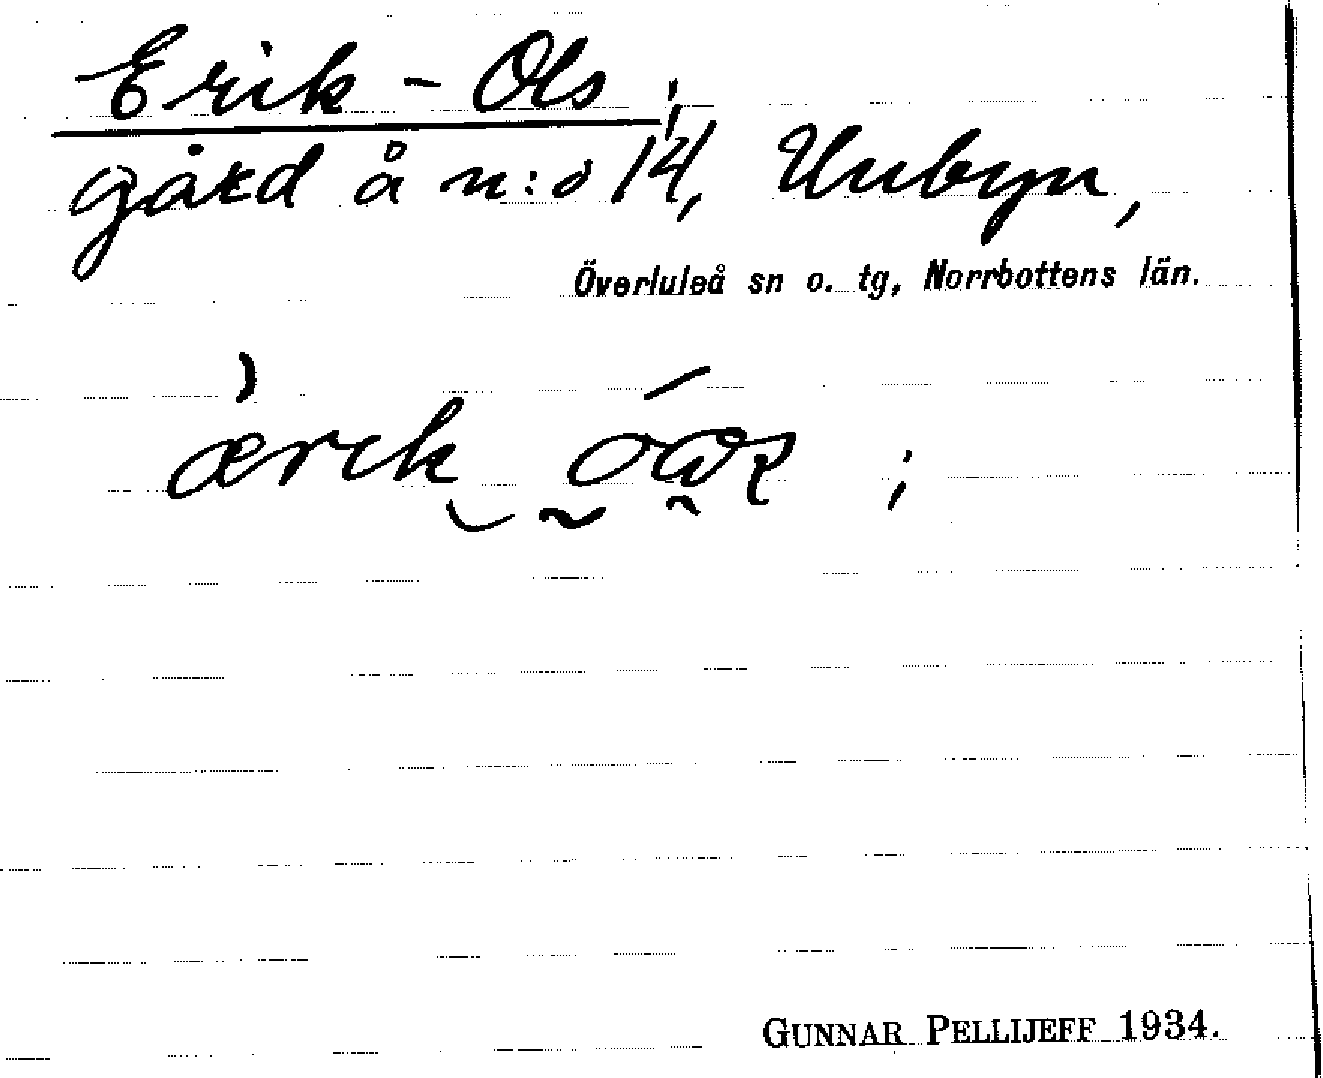 Erik-Ols;
gård å n:o 14, Unbyn,
Överluleå sn o. tg, Norrbottens län.
GUNNAR PELLIJEFF 1934.